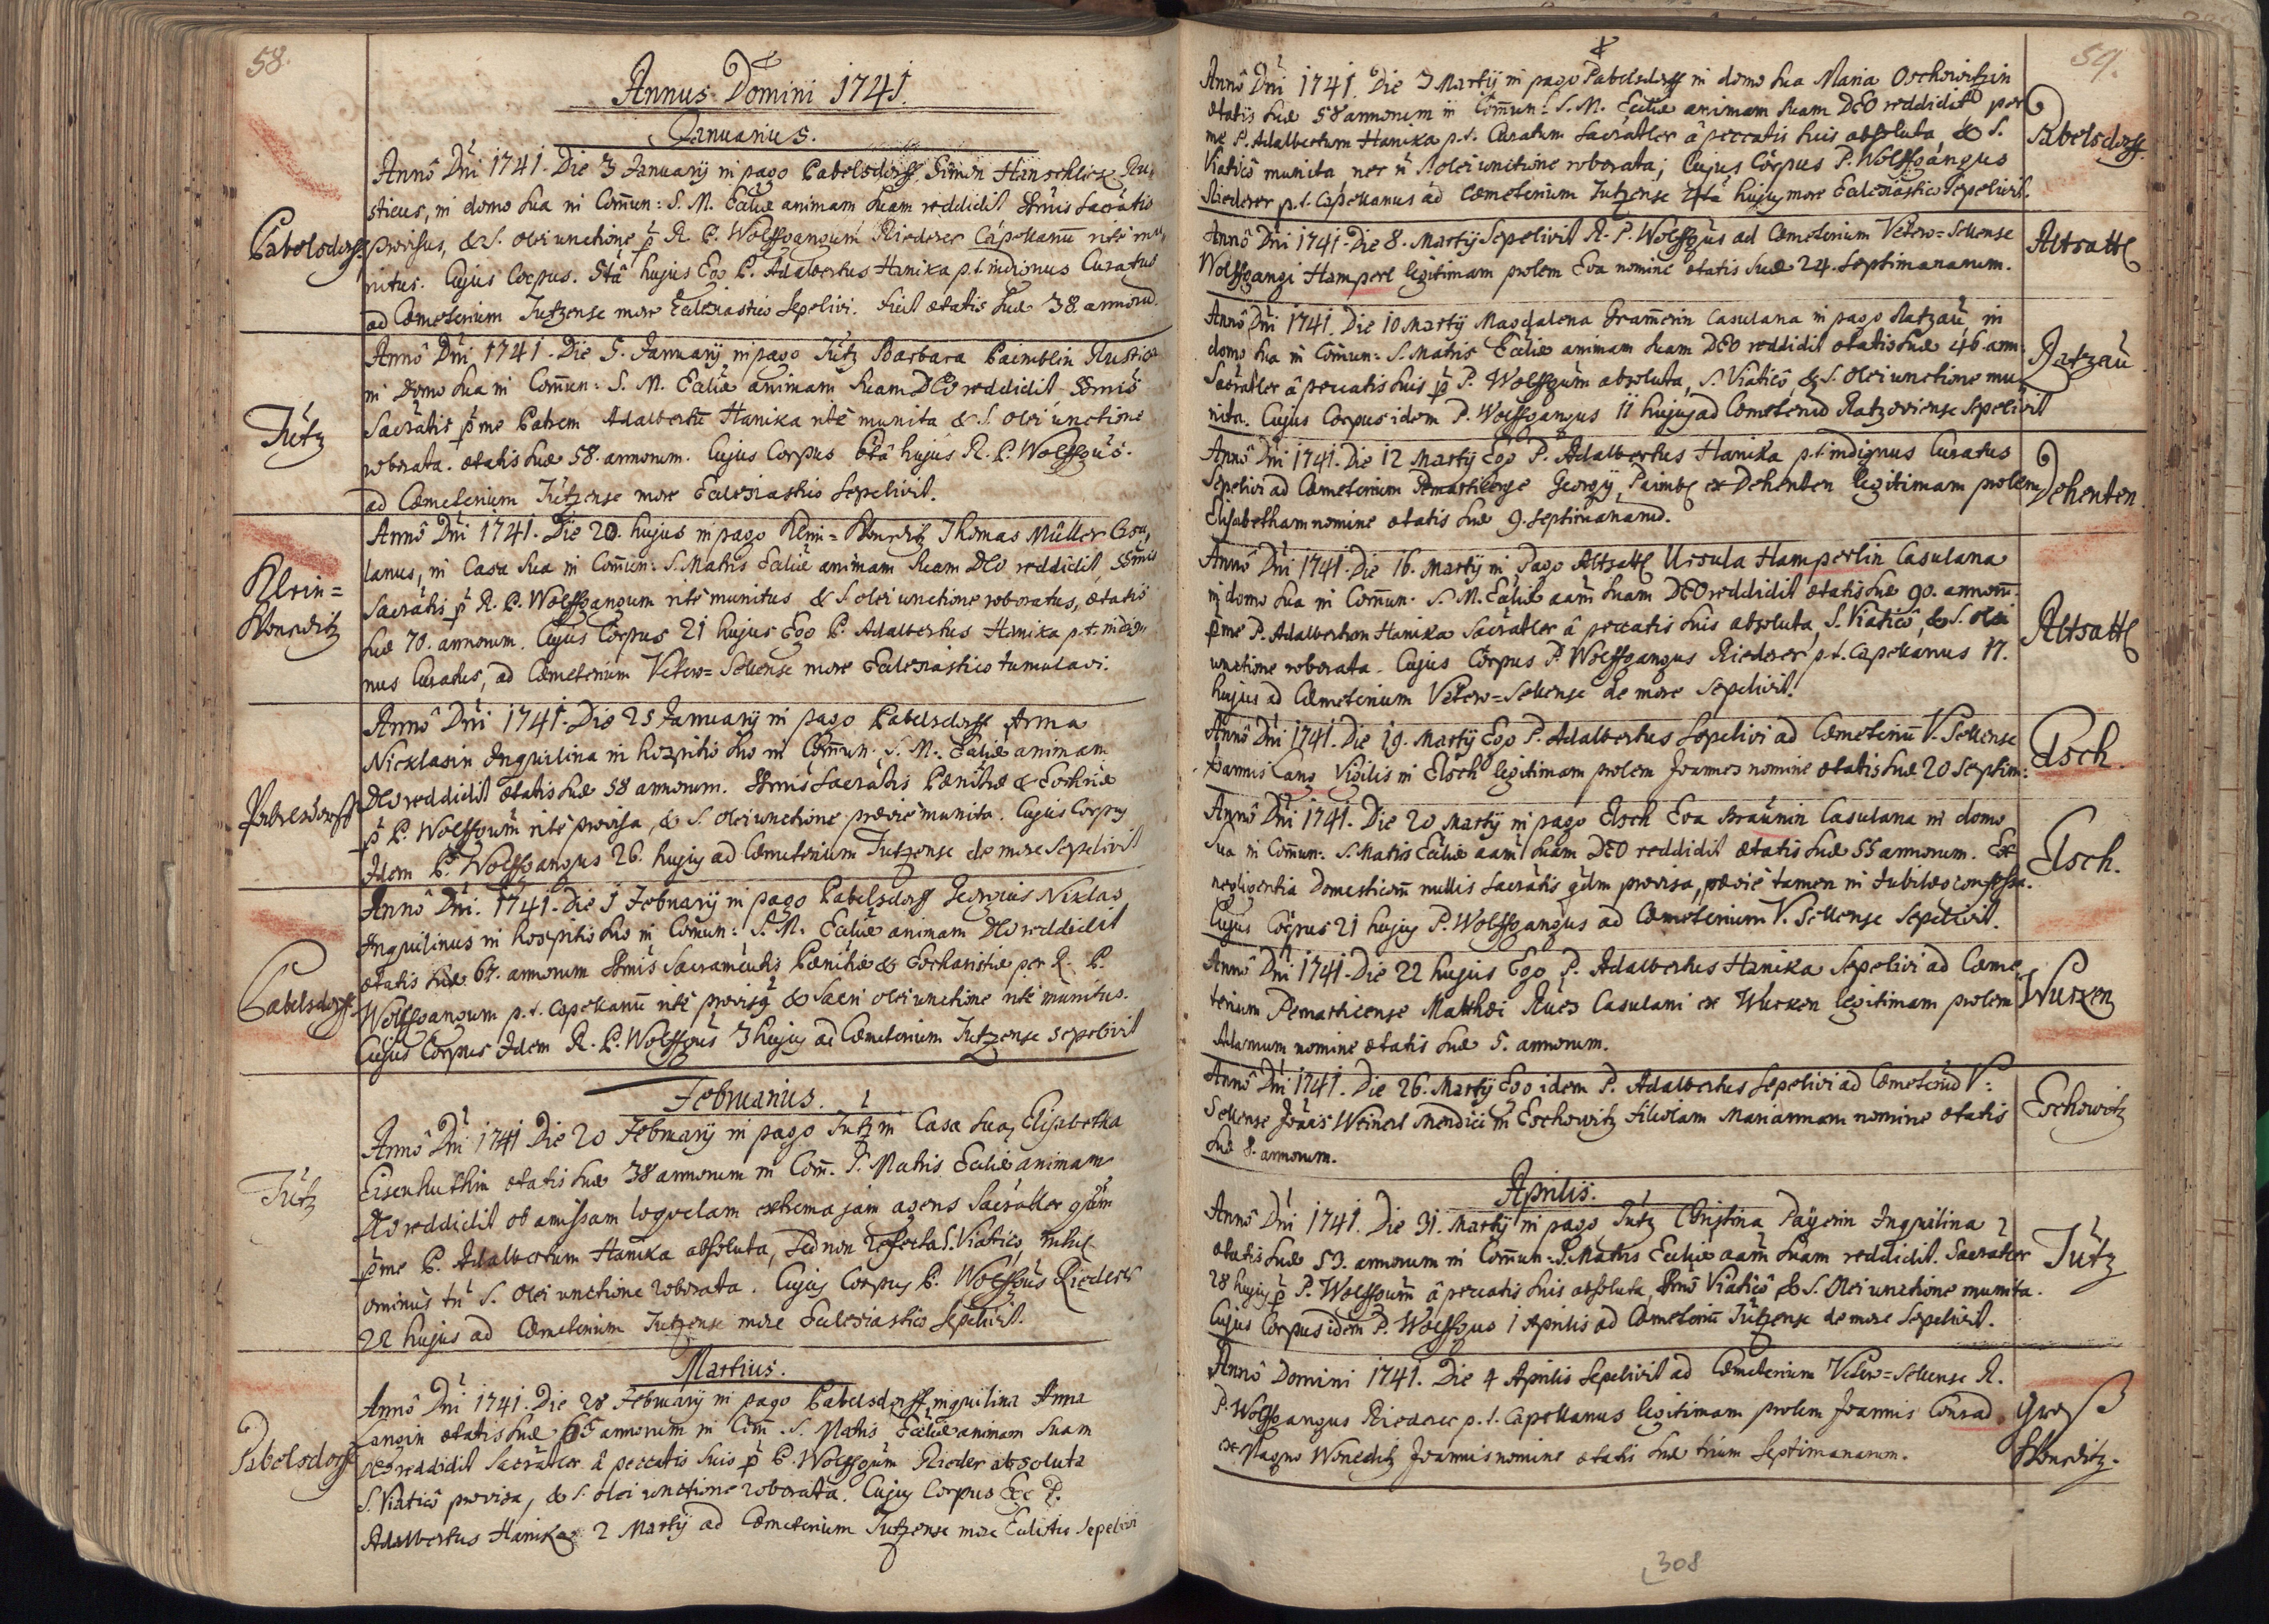 58.
Annus Domini 1741.
Januarius.
Pabelsdorff
Annô Dni 1741. Die 3 Januarij in pago Pabelsdorff Simon Hanschlick Ru-
sticus, in domo sua in Comun: S. M. Ecliæ animam suam reddidit, Ssmis Sacratis
provisus, & S. olei unctione p R. P. Wolffgangum Riederer Capellanu ritè mu-
nitus. Cujus Corpus 5tâ hujus Ego P. Adalbertus Hanika p.t. indignus Curatus
ad Cæmeterium Tutzense more Ecclesiastico sepelivi. fuit ætatis suæ 38 annoru.
Tutz
Annô Dni 1741. Die 5. Januarij in pago Tutz Barbara Paimblin Rustica
in Domo sua in Comun: S. M. Ecliæ animam suam DEO reddidit Ssmis
Sacratis p me Patrem Adalbertu Hanika ritè munita & S. olei unctione
roborata. ætatis suæ 58. annorum. Cujus Corpus 6tâ hujus R. P. Wolffgus.
ad Cæmeterium Tutzense more Ecclesiastico sepelivit.
Klein=
Wonsditz
Annô Dni 1741. Die 20. hujus in pago Klein=Wonsditz Thomas Müller Casu-
lanus, in Casa sua in Comun: S. Matris Ecliæ animam suam DEO reddidit, Ssmis
Sacratis p R. P. Wolffgangum ritè munitus & S. olei unctione roboratus, ætatis
suæ 70. annorum. Cujus Corpus 21 hujus Ego P. Adalbertus Hanika p.t. indig-
nus Curatus, ad Cæmeterium Vetero=Sellense more Ecclesiastico tumulavi.
Pabelsdorff
Annô Dni 1741. Die 25 Januarij in pago Pabelsdorff Anna
Nicklasin Inquilina in hospitio suo in Comun: S. M. Ecliæ animam
DEO reddidit ætatis suæ 58 annorum. Ssmis Sacratis Pænitiæ & Euchriæ
p P. Wolffgum ritè provisa, & S. olei unctione præviè munita. Cujus Corpus
Idem P. Wolffgangus 26. hujus ad Cæmeterium Tutzense de more sepelivit
Pabelsdorff
Annô Dni. 1741. Die 1 Februarij in pago Pabelsdorff Georgius Niklas
Inquilinus in hospitio suo in Comun: S. M. Ecliæ animam DEO reddidit
ætatis suæ 67. annorum Ssmis Sacramentis Pænitiæ & Eucharistiæ per R. P.
Wolffgangum p.t. Capellanu ritè provisq & Sacri olei unctione ritè munitus.
Cujus Corpus Idem R. P. Wolffgus 3 hujus ad Cæmeterium Tutzense sepelivit
Februarius.
Tutz
Annô Dni 1741 Die 20 Februarij in pago Tutz in Casa sua, Elisabetha
Eisenhuthin ætatis suæ 38 annorum in Com. S. Matris Ecliæ animam
DEO reddidit ob amissam loquelam extrema jam agens Sacratler
p me P. Adalbertum Hanika absoluta, sed non refecta S. Viatico, nihil-
ominus tn S. olei unctione roborata. Cujus Corpus P. Wolffgus Riederer
22 hujus ad Cæmeterium Tutzense more Ecclesiastico sepelivit.
Martius.
Pabelsdorff
Annô Dni 1741. Die 28 Februarij in pago Pabelsdorff, inquilina Anna
Langin ætatis suæ 65 annorum in Com. S. Matis Ecliæ animam suam
DEO reddidit Sacratler â peccatis suis p P. Wolffgum Rieder absoluta
S. Viaticô provisa, & S. olei unctione roborata. Cujus Corpus Ego P.
Adalbertus Hanika 2 Martij ad Cæmeterium Tutzense more Eclistico sepelivi
59.
Annô Dni 1741. Die 3 Martij in pago Pabelsdorff in domo sua Maria Oschowitzin
ætatis suæ 58 annorum in Comun: S. M. Ecliæ animam suam DEO reddidit per
me P. Adalbertum Hanika p.t. Curatum Sacratler â peccatis suis absoluta, & S.
Viaticô munita nec n S. olei unctione roborata; Cujus Corpus P. Wolffgangus
Riederer p.t. Capellanus ad Cæmeterium Tutzense 4tâ hujus more Ecclesiastico sepelivit.
Pabelsdorff.
Annô Dni 1741. Die 8. Martij Sepelivit R. P. Wolffgus ad Cæmeterium Vetero=Sellense
Wolffgangi Hamperl legitimam prolem Eva nomine ætatis suæ 24. septimanarum.
Altsattl
Annô Dni 1741. Die 10 Martij Magdalena Gramerin Casulana in pago Ratzau, in
domo sua in Comun: S. Matris Ecliæ animam suam DEO reddidit ætatis suæ 46 ann:
Sacratler â peccatis suis p P. Wolffgum absoluta, S. Viaticô & S. olei unctione mu-
nita. Cujus Corpus idem P. Wolffgangus 11 hujus ad Cæmeteriu Ratzoviense sepelivit
Ratzau
Annô Dni 1741. Die 12 Martij Ego P. Adalbertus Hanika p.t. indignus Curatus
sepelivi ad Cæmeterium Pernarticense Georgij Paimbl ex Dehenten legitimam prolem
Elisabetham nomine ætatis suæ 9. septimanaru.
Dehenten
Annô Dni 1741. Die 16. Martij in Pago Altsattl Ursula Hamperlin Casulana
in domo sua in Comun. S. M. Ecliæ aam suam DEO reddidit ætatis suæ 90. annom.
p me P. Adalbertum Hanika Sacratler â peccatis suis absoluta, S. Viaticô, & S. olei
unctione roborata. Cujus Corpus P. Wolffgangus Riederer p.t. Capellanus 17.
hujus ad Cæmeterium Vetero=Sellense de more sepelivit.
Altsattl
Annô Dni 1741. Die 19. Martij Ego P. Adalbertus sepelivi ad Cæmeteriu V. Sellense
Joannis Lang Vigilis in Elsch legitimam prolem Joannes nomine ætatis suæ 20 septim:
Elsch.
Annô Dni 1741. Die 20 Martij in pago Elsch Eva Braunin Casulana in domo
sua in Comun: S. Matris Ecliæ aam suam DEO reddidit ætatis suæ 55 annorum. Ex
negligentia Domesticom nullis Sacratis provisa, præviè tamen in Jubilæo confessa.
Cujus Corpus 21 hujus P. Wolffgangus ad Cæmeterium V. Sellense sepelivit.
Elsch.
Annô Dni 1741. Die 22 hujus Ego P. Adalbertus Hanika sepelivi ad Cæme-
terium Pernarticense Matthæi Rues Casulani ex Wurken legitimam prolem
Adamum nomine ætatis suæ 5. annorum.
Wurken
Annô Dni 1741. Die 26. Martij Ego idem P. Adalbertus sepelivi ad Cæmeteriu V:
Sellense Joais Weinerl Mendici in Eschowitz filiolam Mariannam nomine ætatis
suæ 8. annorum.
Eschowitz
Aprilis.
Annô Dni 1741. Die 31. Martij in pago Tutz Christina Payerin Inquilina
ætatis suæ 53. annorum in Comun: S. Matris Ecliæ aam suam reddidit. Sacratler
28 hujus p P. Wolffgum â peccatis suis absoluta, Ssmô Viaticô & S. olei unctione munita.
Cujus Corpus idem P. Wolffgus 1 Aprilis ad Cæmeteriu Tutzense de more sepelivit.
Tutz
Annô Domini 1741. Die 4 Aprilis sepelivit ad Cæmeterium Vetero=Sellense R.
P. Wolffgangus Riederer p.t. Capellanus legitimam prolem Joannis Conrad
ex Magno Wonsditz Joannis nomine ætatis suæ trium septimanarum.
Groß
Wonsditz.
308